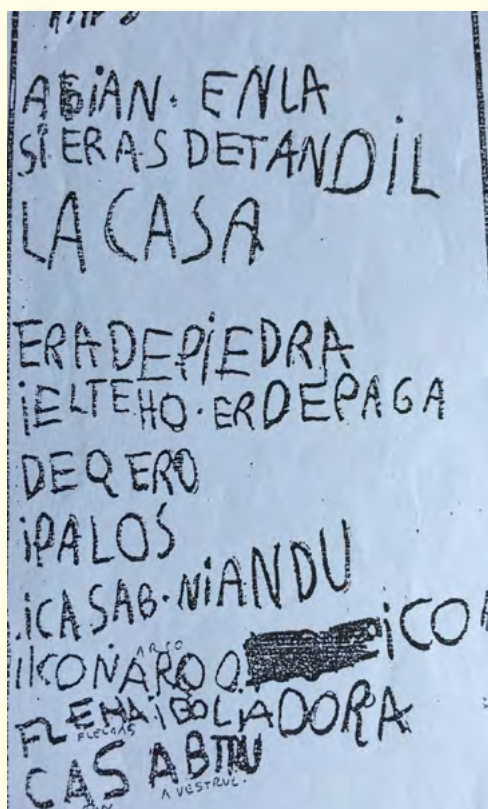 ABIAN. EN LA
SiERAS DETANDiL
LA CASA
ERA DEPiEDRA
iELTEHO. ERDEPAGA
DEQERO
iPALOS
iCASAB. NiANDU
ARCO
iCONARO iCO
FLEHAiBOLIADORA
FLECHAS
CAS AB
AVESTRUZ.